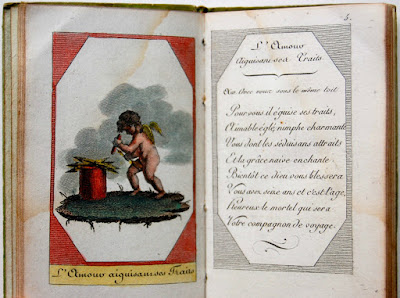 L'Amour aiguisant ses Traits
5.
L'Amour
aiguisant ses Traits
Air Chez vous sous le même toit
Pour vous il éguise ses traits,
Aimable églé, nimphe charmante
Vous dont les séduisans attraits
Et la grâce naive enchante
Bientôt ce dieu vous blessera
Vous avez seize ans et c'est l'age,
Heureux le mortel qui sera
Votre compagnon de voyage.